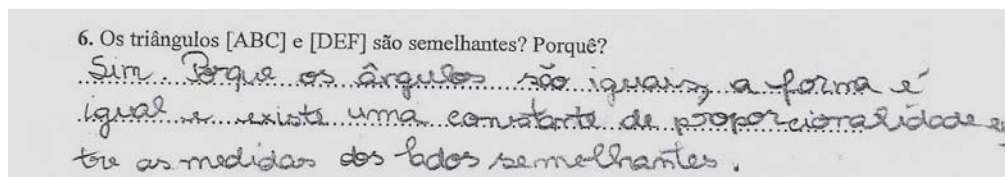 6. Os triângulos [ABC] e [DEF] são semelhantes? Porquê?
Sim. Porque os ângulos são iguais, a forma é
igual e existe uma constante de proporcionalidade e
tre as medidas dos lados semelhantes.